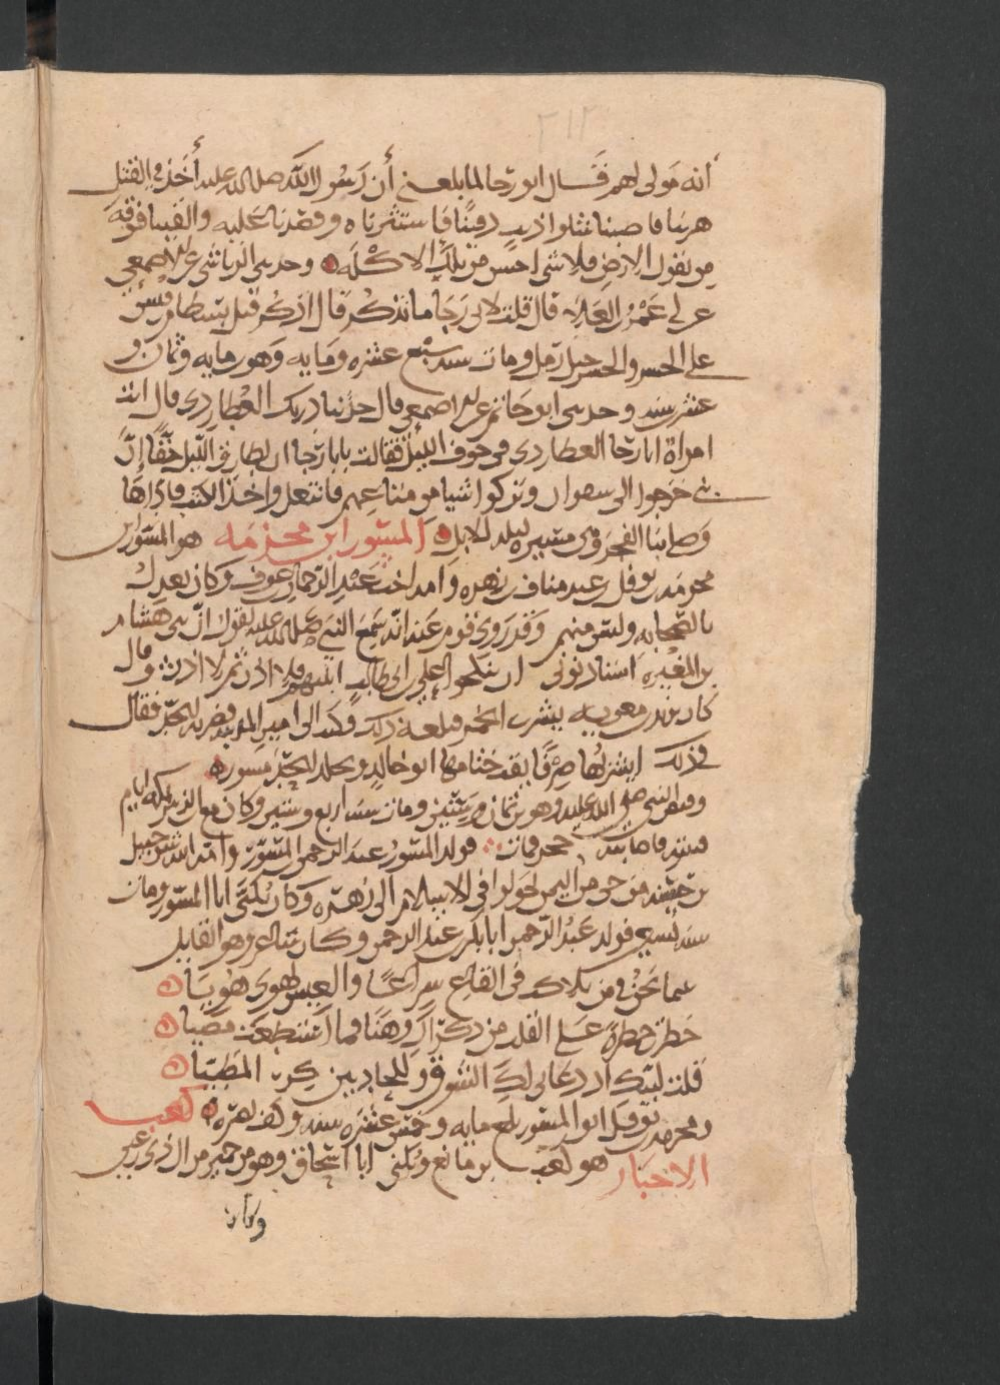 ٢١٢
أنه مولى لهم قال ابو رجا لما بلغني أن رسول الله صلى الله عليه أخذ في القتل
هربنا فاصبنا شلو ارنب دفينا فاستثرناه وقعدنا عليه والقينا فوقه
من بقول الارض فلا انسى احسن من تلك الاكلة وحدثني الرياشي عن الاصمعي
عن ابي عمرو بن العلا قال قلت لابي رجا ما تذكر قال اذكر قتل بسطام بن قيس
على الحسن والحسن حبل رمل ومات سنه سبع عشره ومايه وهو ابن مايه وثمان و
عشرين سنه وحدثني ابو حاتم عن الاصمعي قال حدثنا زريك العطاردي قال اتت
امراة ابا رجا العطاردي في جوف الليل فقالت يابا رجا ان لطارق الليل حقا إن
بني خرجوا الى سفوان وتركوا شيا من متاعهم فانتعل واخذ الكتب فاداها
وصلى بنا الفجر وهي مسيرة ليلة للابل المسور ابن مخرمه هو المسور بن
مخرمة بن نوفل بن عبد مناف بن زهره وامه اخت عبد الرحمن بن عوف وكان يعدل
بالصحابه وليس منهم وقد روى قوم عنه انه سمع النبي صلى الله عليه يقول ان بني هشام
بن المغيره استاذنوني ان ينكحوا علي بن ابي طالب ابنتهم فلا اذن ثم لا اذن وقال
كان يزيد بن معويه يشرب الخمر فبلغه ذلك فكتب الى امير المدينة فضربه الحد فقال
في ذلك ايشربها صرفا يفت ختامها ابو خالد ويجلد الحد مسور
وقبض النبي صلى الله عليه وهو بن ثمان سنين ومات سنة اربع وستين وكان مع ابن الزبير بمكه ايام
فتنته فاصابته حجر فمات فولد المسور عبد الرحمن بن المسور وامه ابنة شرحبيل
بن حسنه من حي من اليمن تحولوا في الاسلام الى زهره وكان يكنى ابا المسور ومات
سنة تسعين فولد عبد الرحمن ابا بكر بن عبد الرحمن وكان شاعرا وهو القايل
بينما نحن من بلاكث في القاع سراعا والعيس تهوى هويا
خطرت خطرة على القلب من ذكراك وهنا فما استطعت مضيا
قلت لبيك اذ دعاني لك الشوق وللحاديين كر المطيا
ومخرمة بن نوفل ابو المسور بلغ مايه وخمس عشره سنه وكف بصره كعب
الاحبار هو كعب بن ماتع ويكنى ابا اسحاق وهو من حمير من ال ذي رعين
وكان